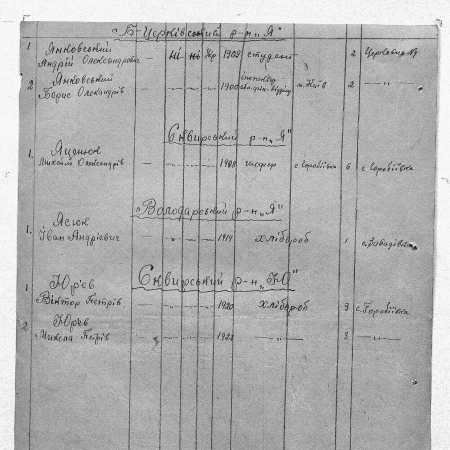 Б-Церківський р-н „Я"
1 Янковський
Андрій Олександрович — ні ні Кр 1909 студент 2
2 Янковський
Борис Олександрів — — — — 1900 м. Київ 2 —„—
Сквирський р-н „Я"
1. Яценюк
Михайло Олександрів — — — — 1908 шофер с. Горобіївка 6 с. Горобіївка
Володарський р-н „Я"
1. Ясюк
Іван Андрієвич — — — — 1914 хлібороб 1 с. Завадівка
Сквирський р-н „Ю"
1 Юр'єв
Віктор Петрів — — — — 1920 хлібороб 3 с. Горобіївка
2 Юр'єв
Микола Петрів — — — — —„— 3 —„—